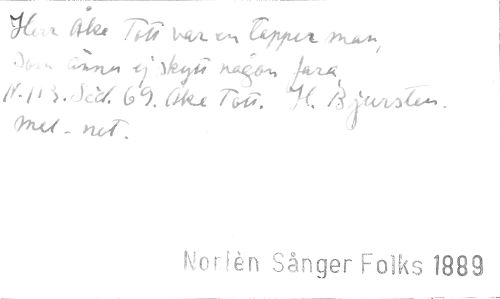 Herr Åke Tott var en tapper man,
som ännu ej skytt någon fara,
N. 113. Sid. 69. Åke Tott. H. Bjursten.
mel - not.
Norlèn Sånger Folks 1889